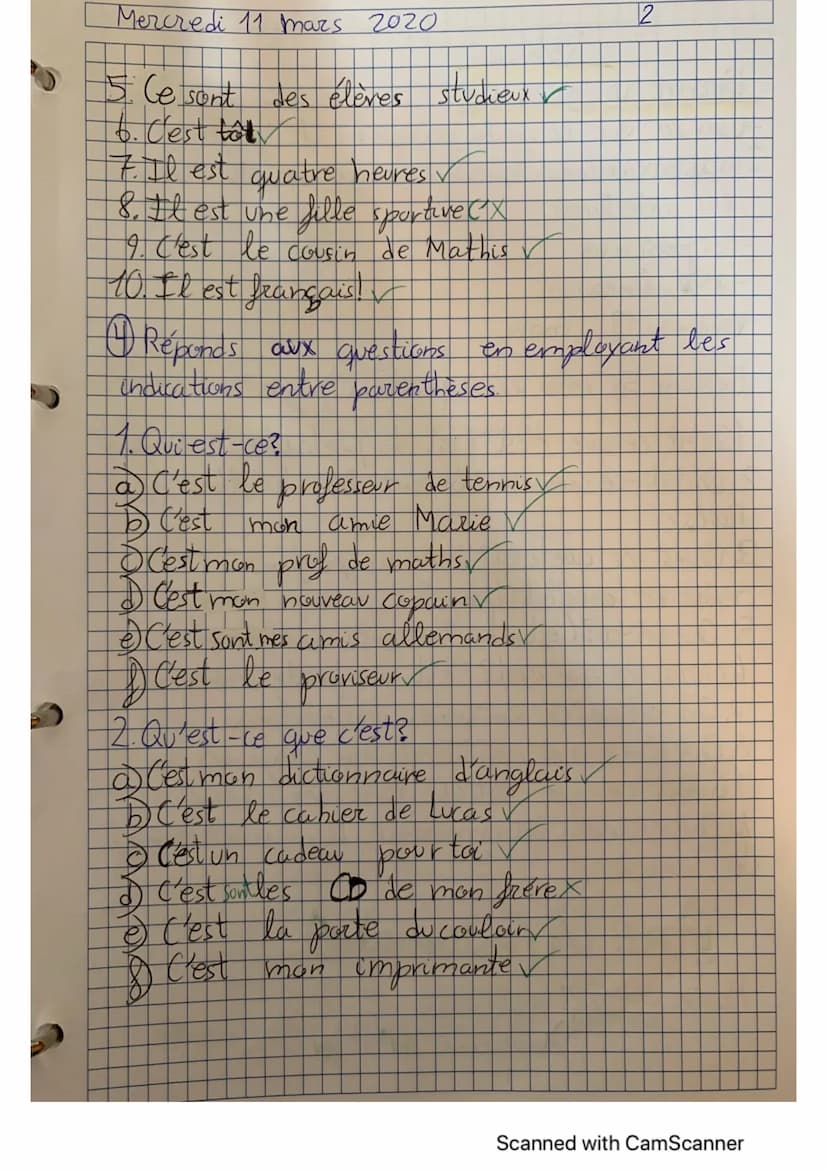 Mercredi 11 mars 2020 2
5. Ce sont des élèves studieux ✓
6. C'est tôt ✓
7. Il est quatre heures ✓
8. Il est une fille sportive C' X
9. C'est le cousin de Mathis ✓
10. Il est français! ✓
④ Réponds aux questions en employant les
indications entre parenthèses.
1. Qui est-ce?
a) C'est le professeur de tennis ✓
b) C'est mon amie Marie ✓
c) C'est mon prof de maths ✓
d) C'est mon nouveau copain ✓
e) C'est sont mes amis allemands ✓
f) C'est le proviseur ✓
2. Qu'est-ce que c'est?
a) C'est mon dictionnaire d'anglais ✓
b) C'est le cahier de Lucas ✓
c) C'est un cadeau pour toi ✓
d) C'est sont les CD de mon frére X
e) C'est la porte du couloir ✓
f) C'est mon imprimante ✓
Scanned with CamScanner